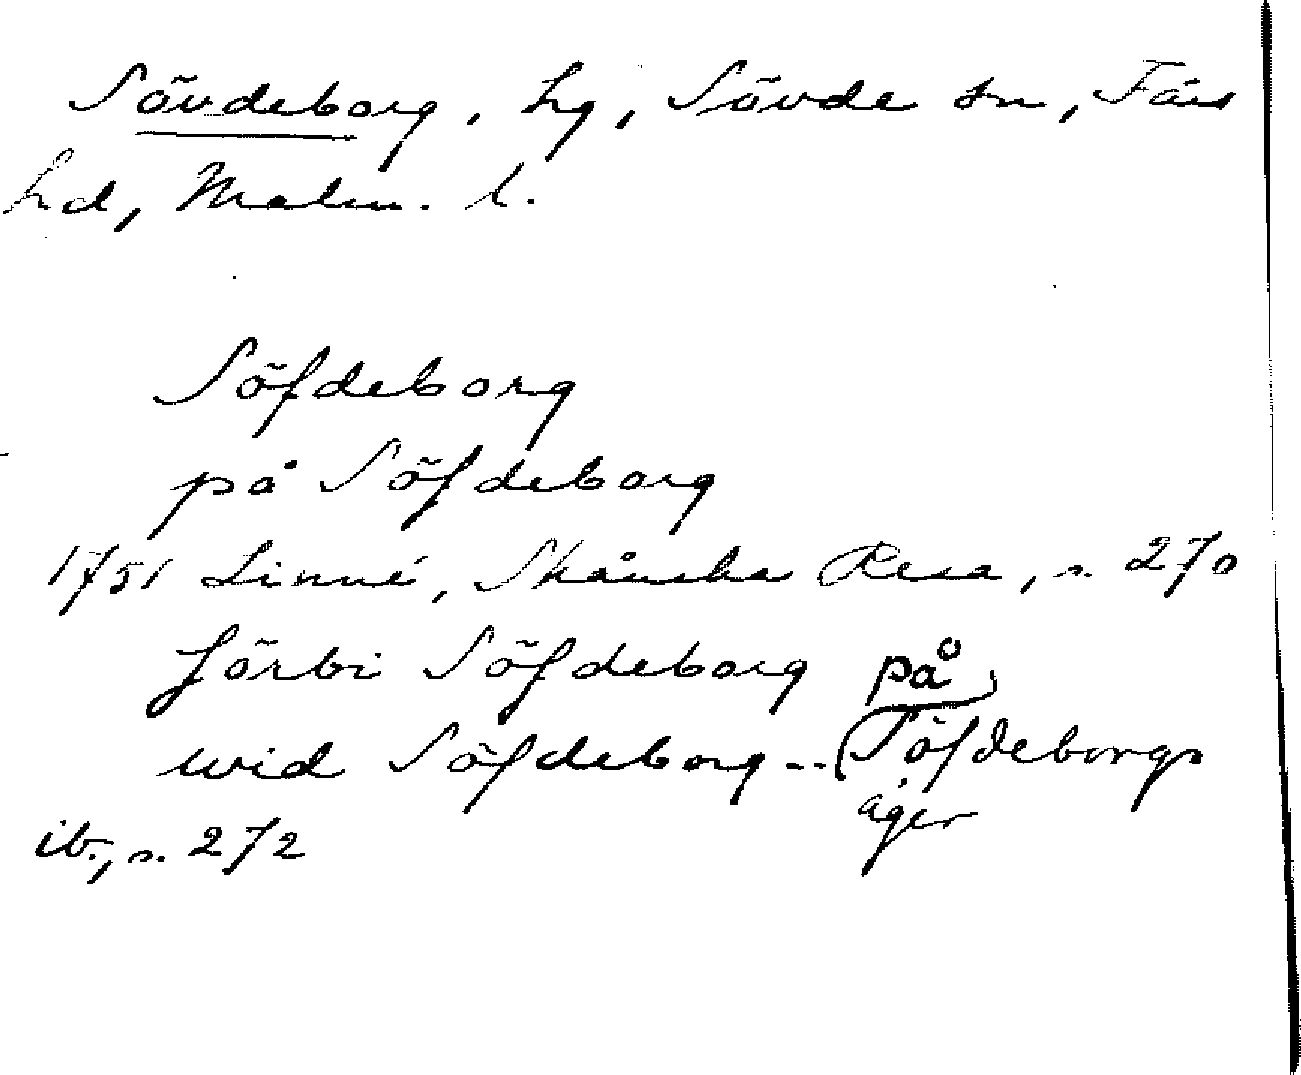 Sövdeborg, hg, Sövde sn, Färs
hd, Malm. l.
Söfdeborg
på Söfdeborg
1751 Linné, Skånska Resa, s. 270
förbi Söfdeborg på
wid Söfdeborg -- Söfdeborgs
äger
ib., s. 272